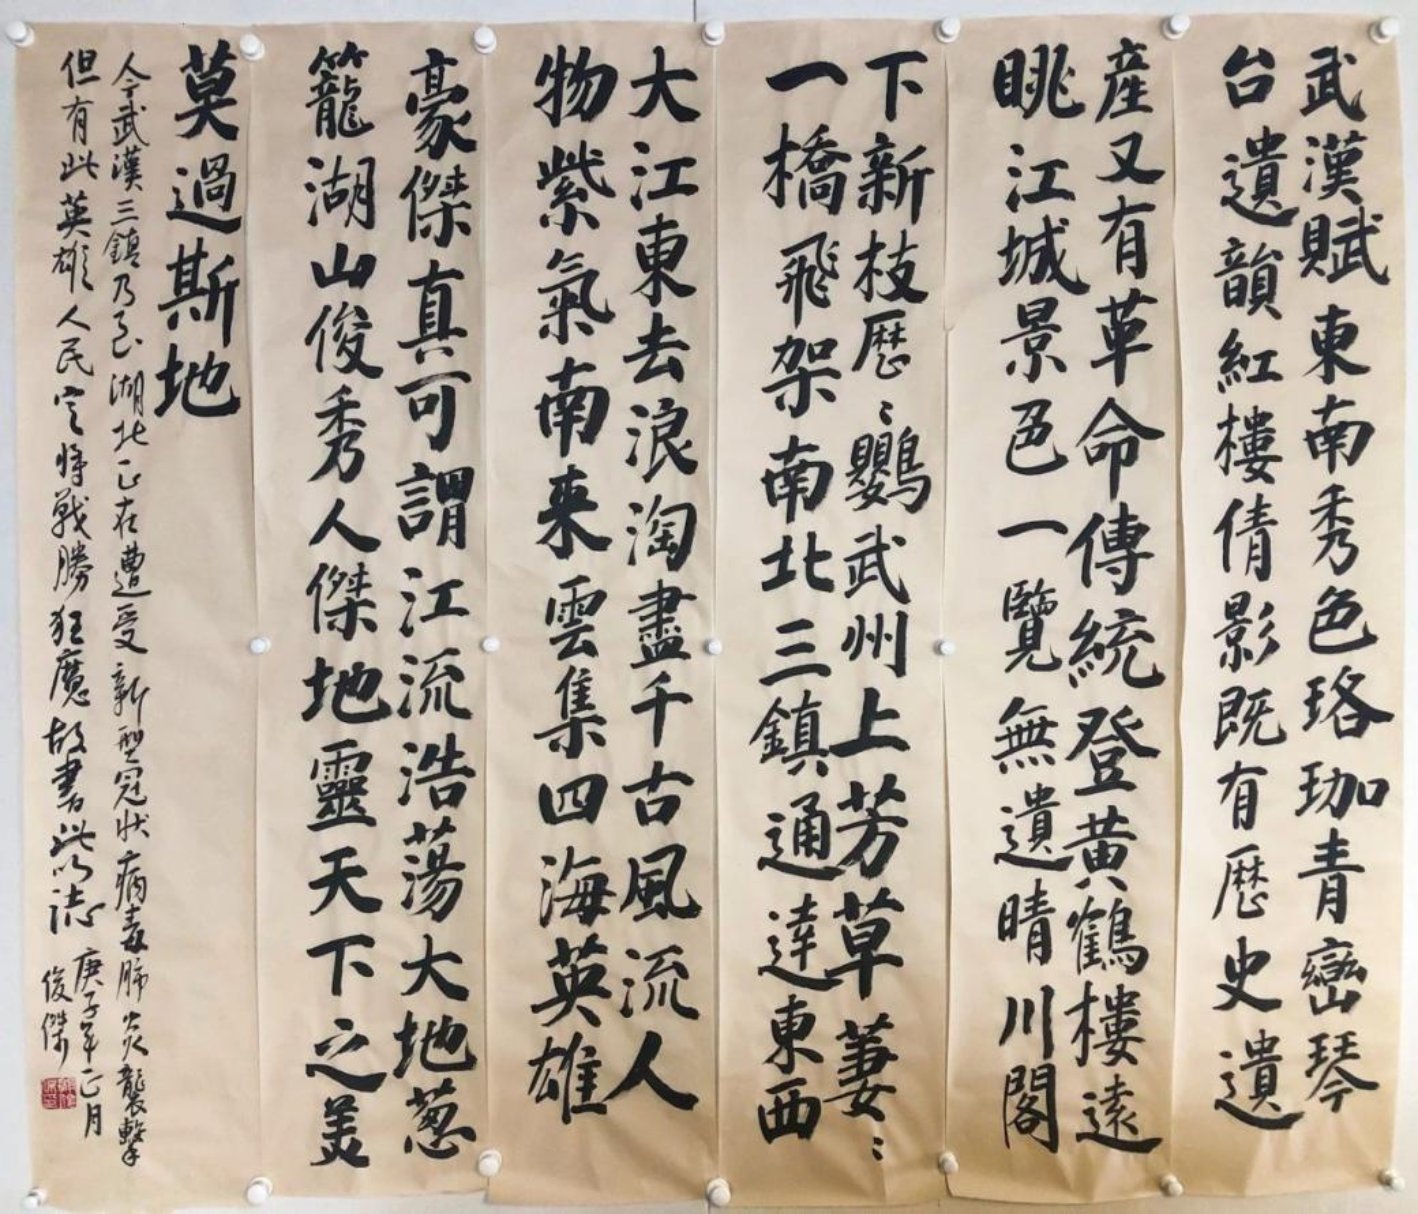 武漢賦東南秀色珞珈青巒琴
台遺韻紅樓倩影既有歷史遺
産又有革命傳統登黃鶴樓遠
眺江城景色一覽無遺晴川閣
下新枝歷〻鸚武州上芳草萋〻
一橋飛架南北三鎮通達東西
大江東去浪淘盡千古風流人
物紫氣南来雲集四海英雄
豪傑真可謂江流浩蕩大地葱
籠湖山俊秀人傑地靈天下之美
莫過斯地
今武漢三鎮乃至湖北正在遭受新型冠狀病毒肺炎襲擊
但有此英雄人民定將戰勝狂魔故書此以誌 庚子年正月
俊傑